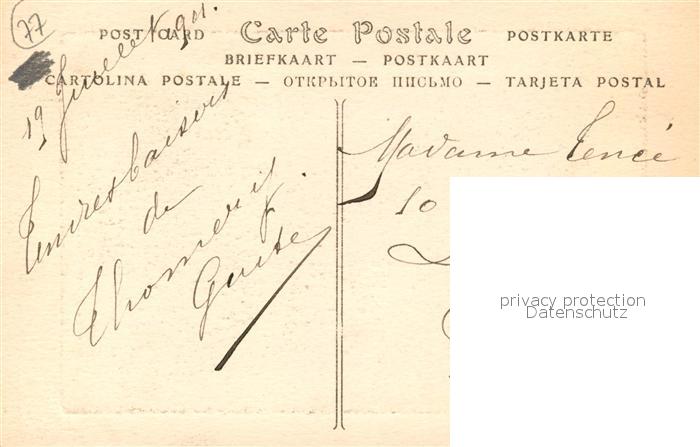 77
POSTCARD Carte Postale POSTKARTE
BRIEFKAART — POSTKAART
CARTOLINA POSTALE — ОТКРЫТОЕ ПИСЬМО — TARJETA POSTAL
19 Juillet 1911.
Tendres baisers
de
Thomery.
Madame Tencé
10
privacy protection
Datenschutz